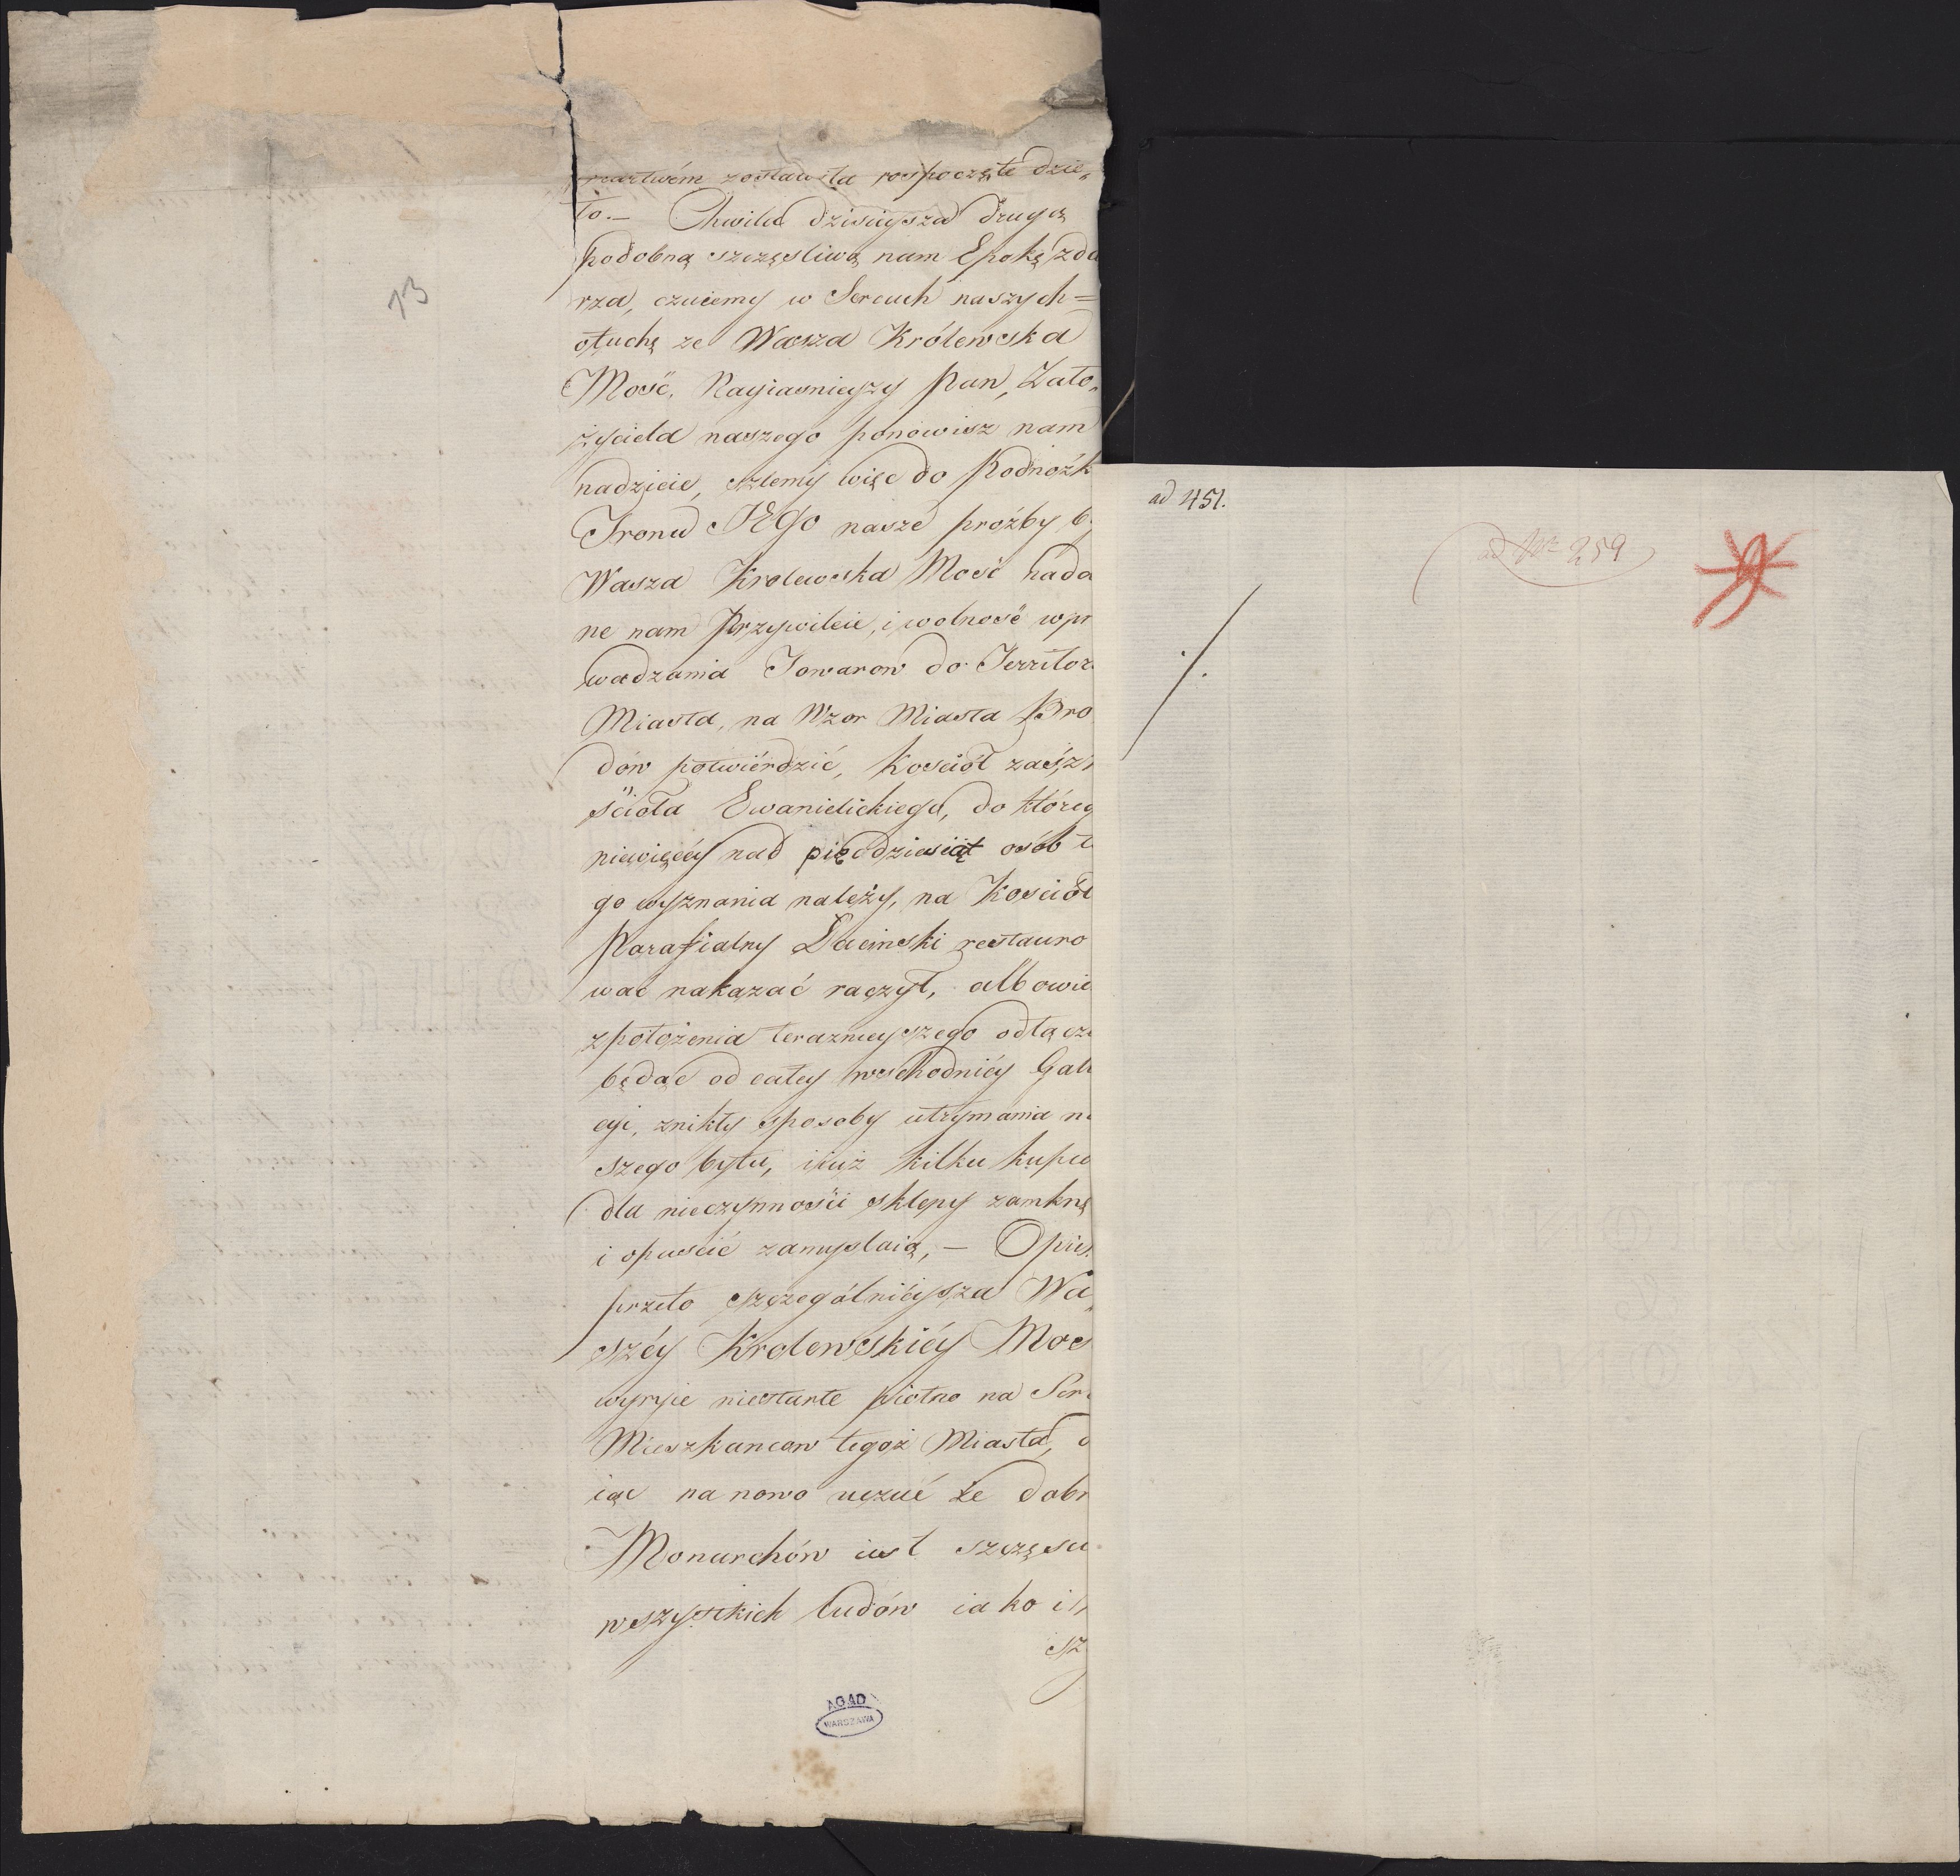 13
martwém zostawiła rospoczęte dzie„
ło.— Chwila dzisieysza drugą
podobną szczęsliwą nam Epokę zda
rza, czuiemy w Sercach naszych=
otuchę ze Wasza Królewska
Mość, Nayiasnieyszy Pan, Zało„
życiela naszego ponowisz nam
nadzieie, szlemy więc do Podnóżk
Tronu JEGo nasze proźby b
Wasza Krolewska Mość nada
ne nam Przywileie, i wolność wpr
wadzania Towarow do Territor
Miasta, na Wzor Miasta Bro
dów potwiérdzić, Kosciół zaś, z
ścioła Ewanielickiego, do któreg
niewięcéy nad pięcdziesiąt osób t
go wyznania należy, na Kosciół
Parafialny Łacinski restauro
wac nakazać raczył, albowie
z położenia teraznieyszego odłącz
będąc od całey wschodniéy Gali
cyi, znikły sposoby utrzymania n
szego bytu, iiuż kilku kupco
dla nieczynności sklepy zamknę
i opuscić zamyslaią,— Opie
przeto szczególniéysza Wa„
széy Krolewskiéy Moś
wyryie niestarte piętno na Serc
Mieszkancow tegoż Miasta, d
iąc na nowo uczuć że dobr
Monarchów iest szczęsci
wszystkich ludów iako i
sz
AGAD
WARSZAWA
ad 451.
ad Nr 259